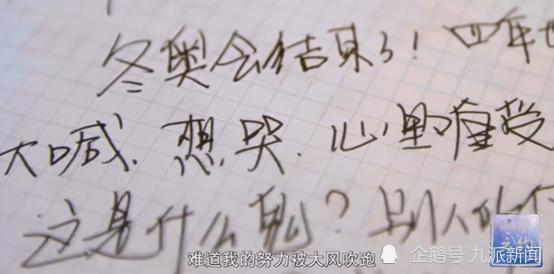 冬奥会结束了！四年
大喊，想哭，心里难受
这是什么鬼？别人的
难道我的努力被大风吹跑
企鹅号 九派新闻